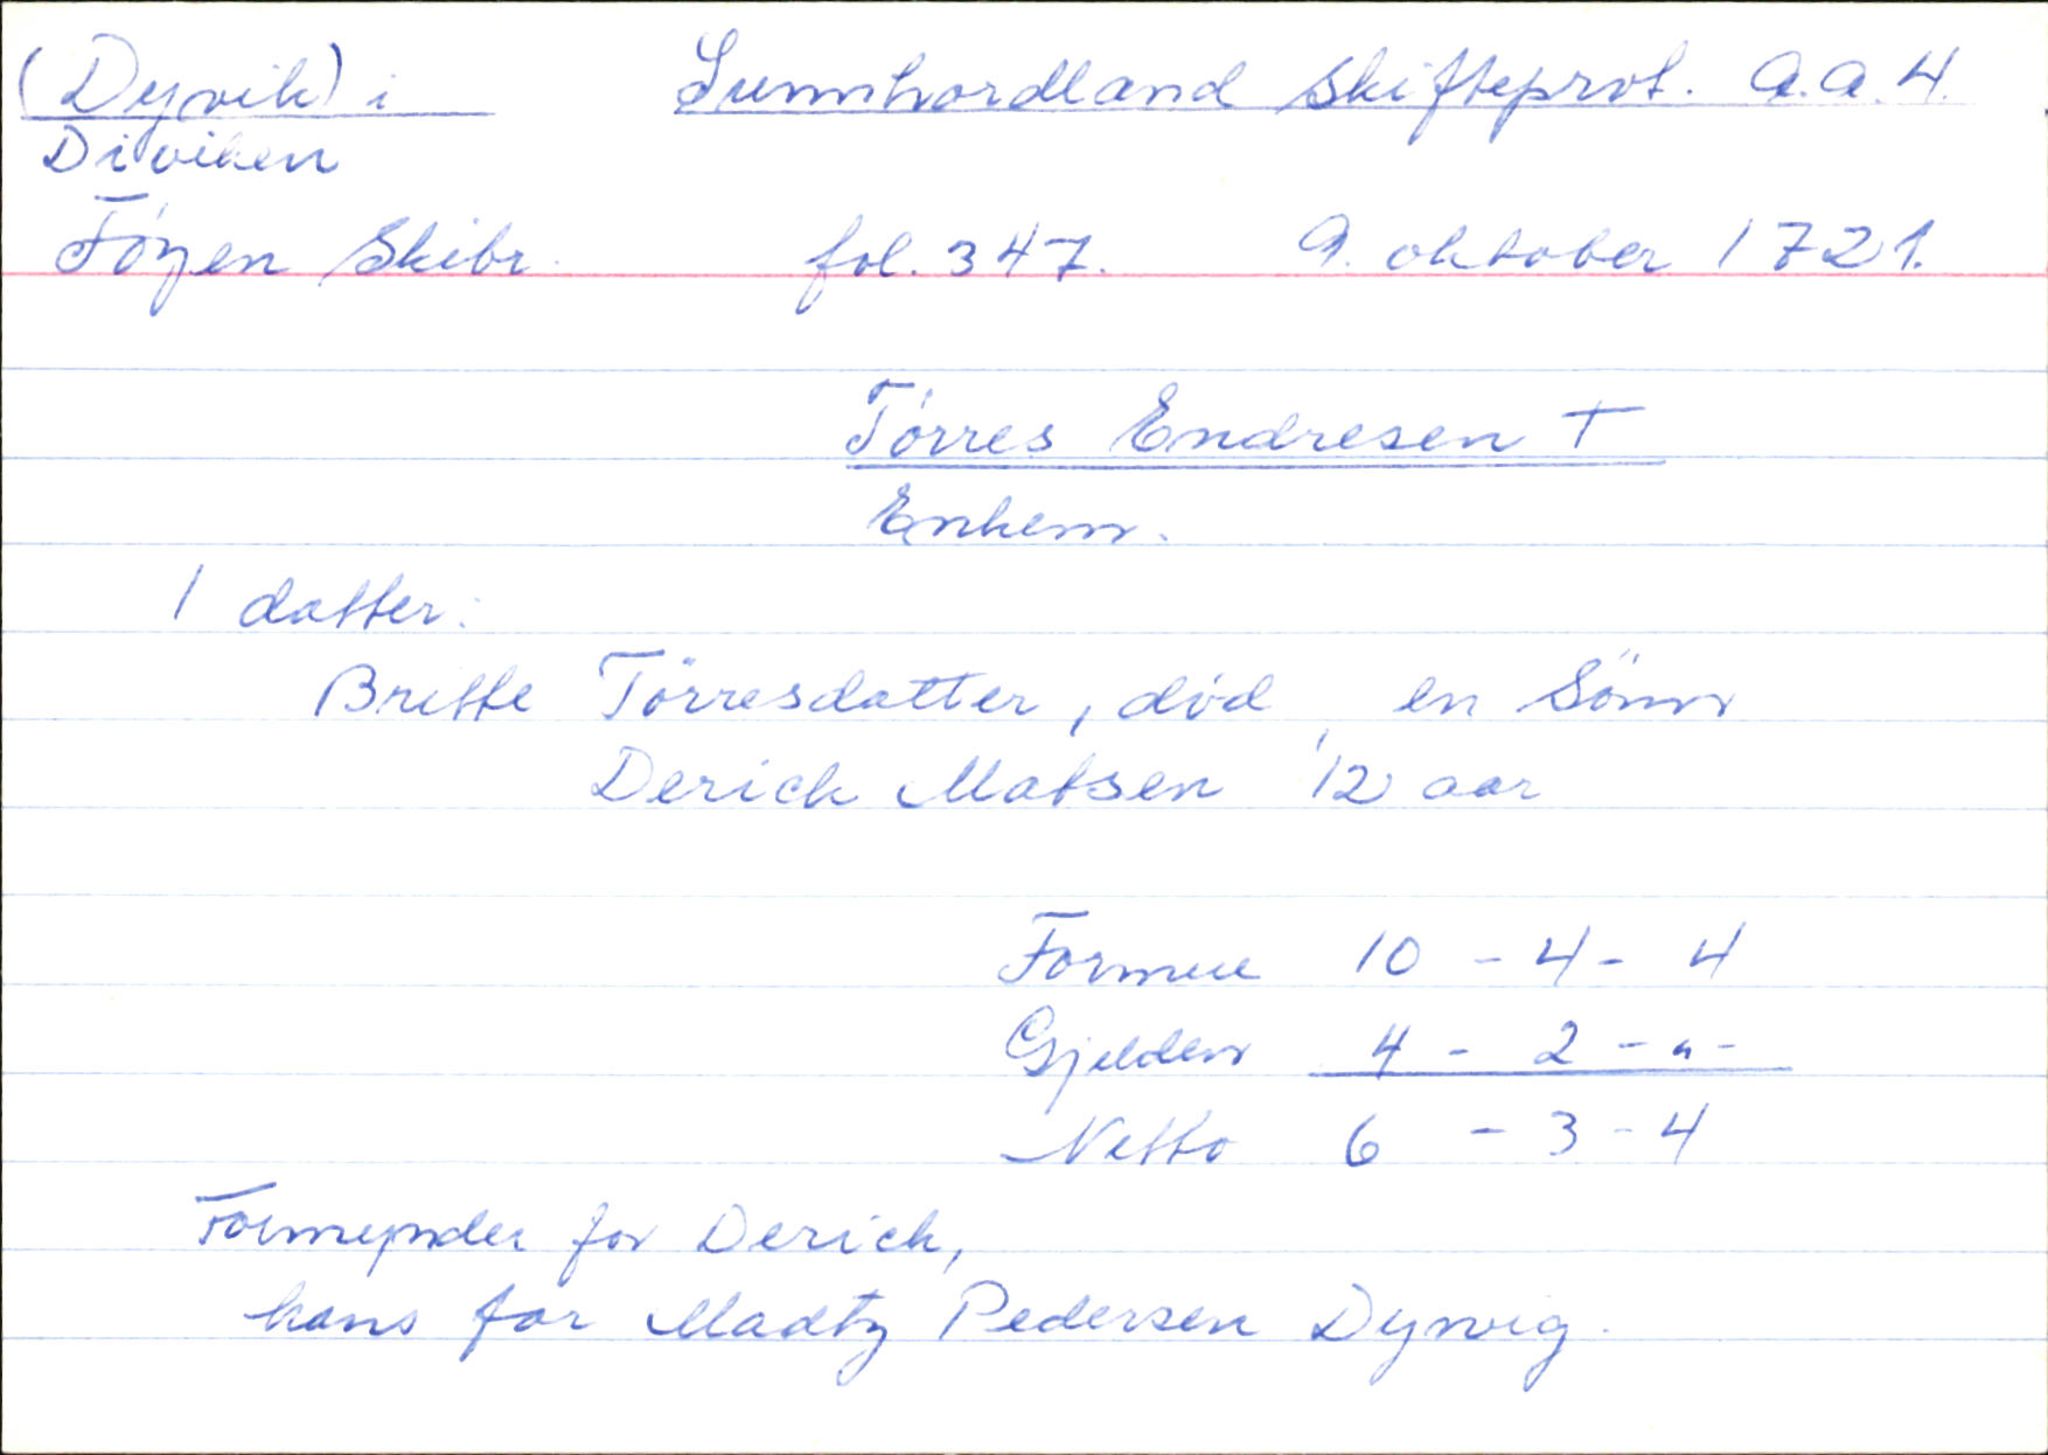 (Dyvik) i Sunnhordland Skifteprot. A.A.4.
Diviken
Föyen Skibr. fol. 347. 9. oktober 1721.
Törres Endresen †
Enkem.
1 datter:
Britte Törresdatter, död, en Sönn
Derich Matsen 12 aar
Formue 10 - 4 - 4
Gjelden 4 - 2 - " -
Netto 6 - 3 - 4
Formynder for Derich,
hans far Madtz Pedersen Dyrvig.